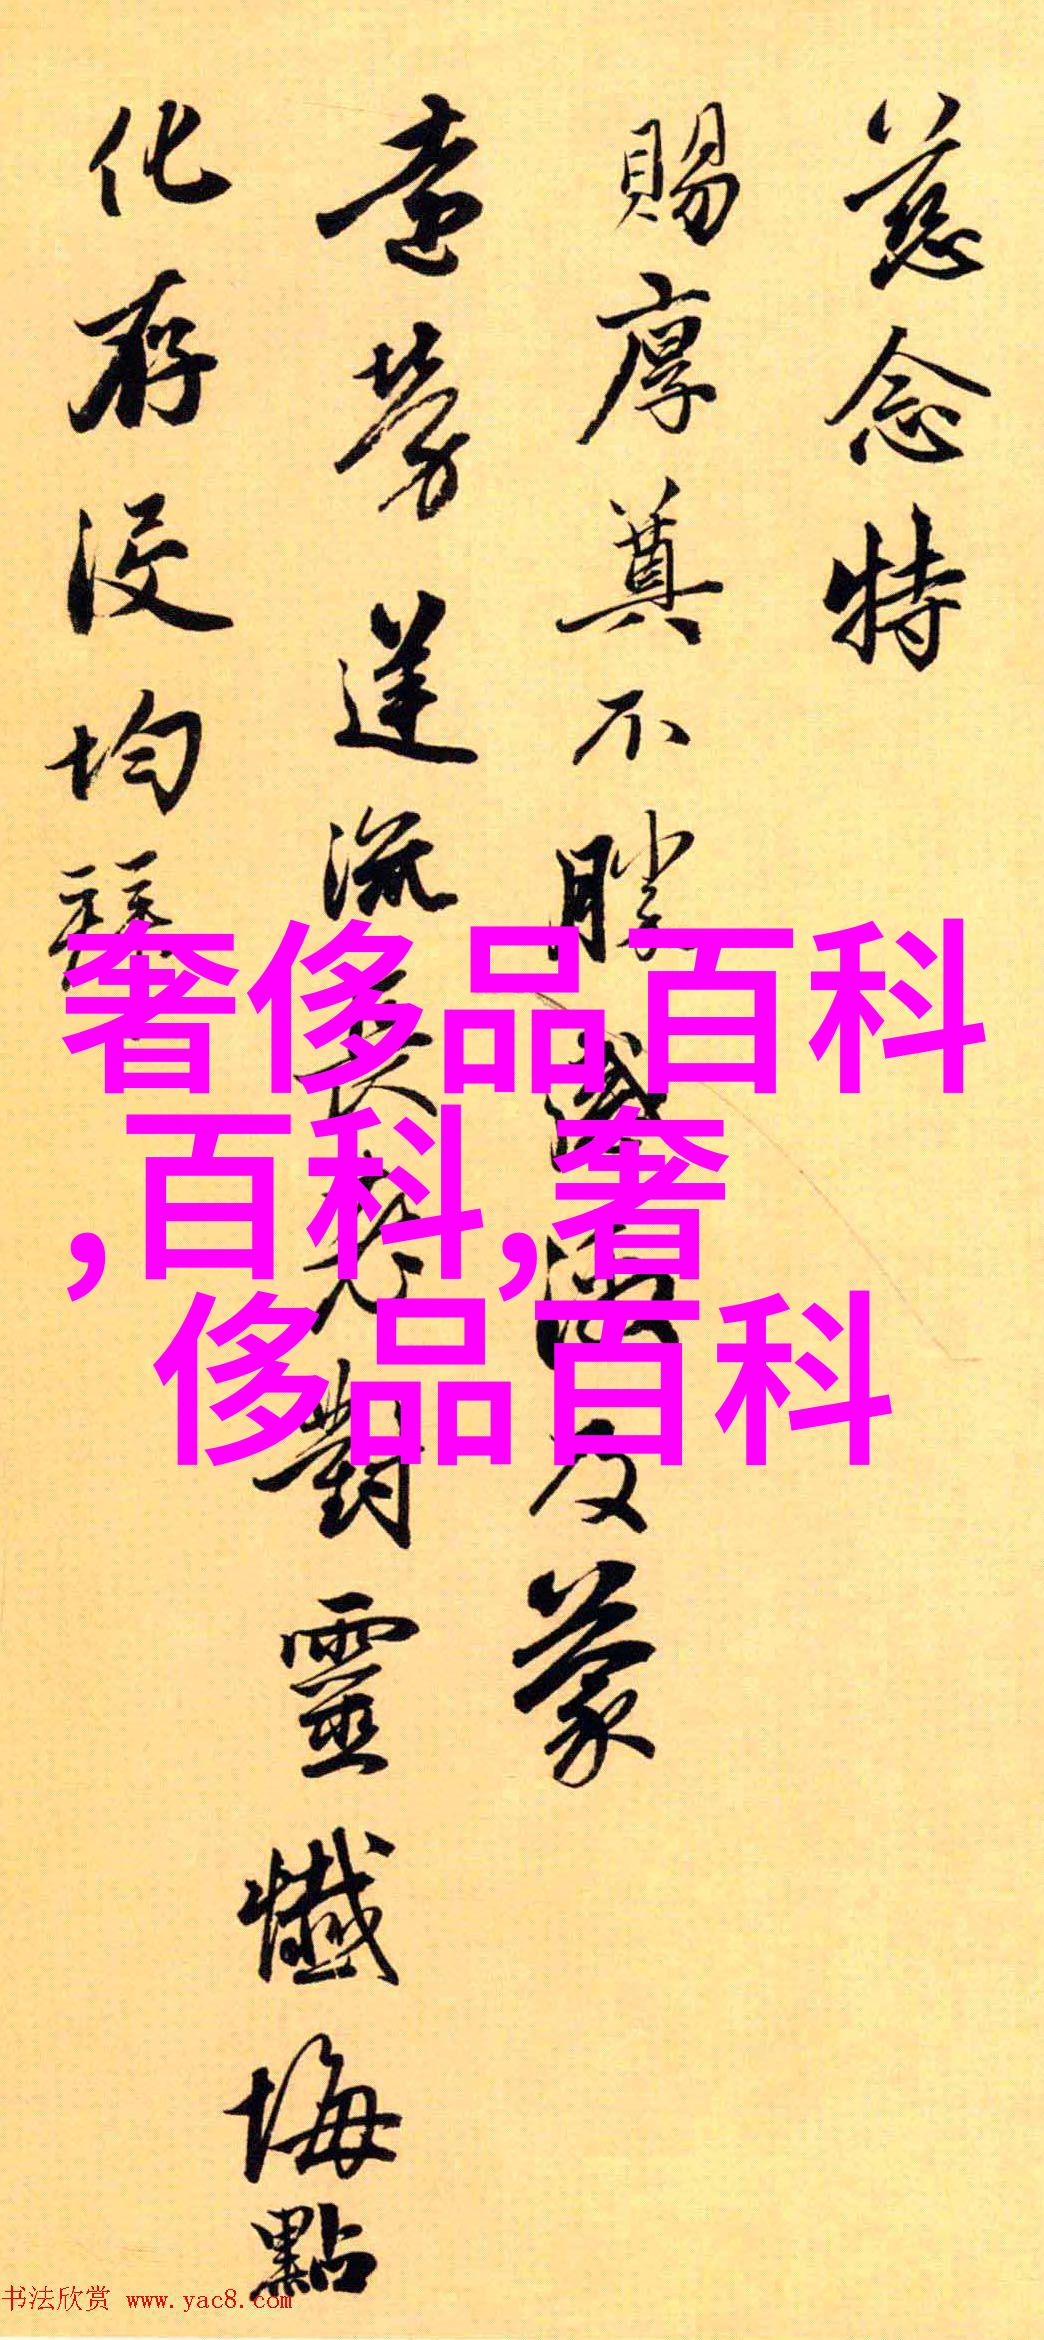 慈念特
賜厚奠不勝感激及蒙
遠勞蓮流
對靈懺悔點
化存沒均
奢侈品百科
,百科,奢
侈品百科
书法欣赏 www.yac8.com